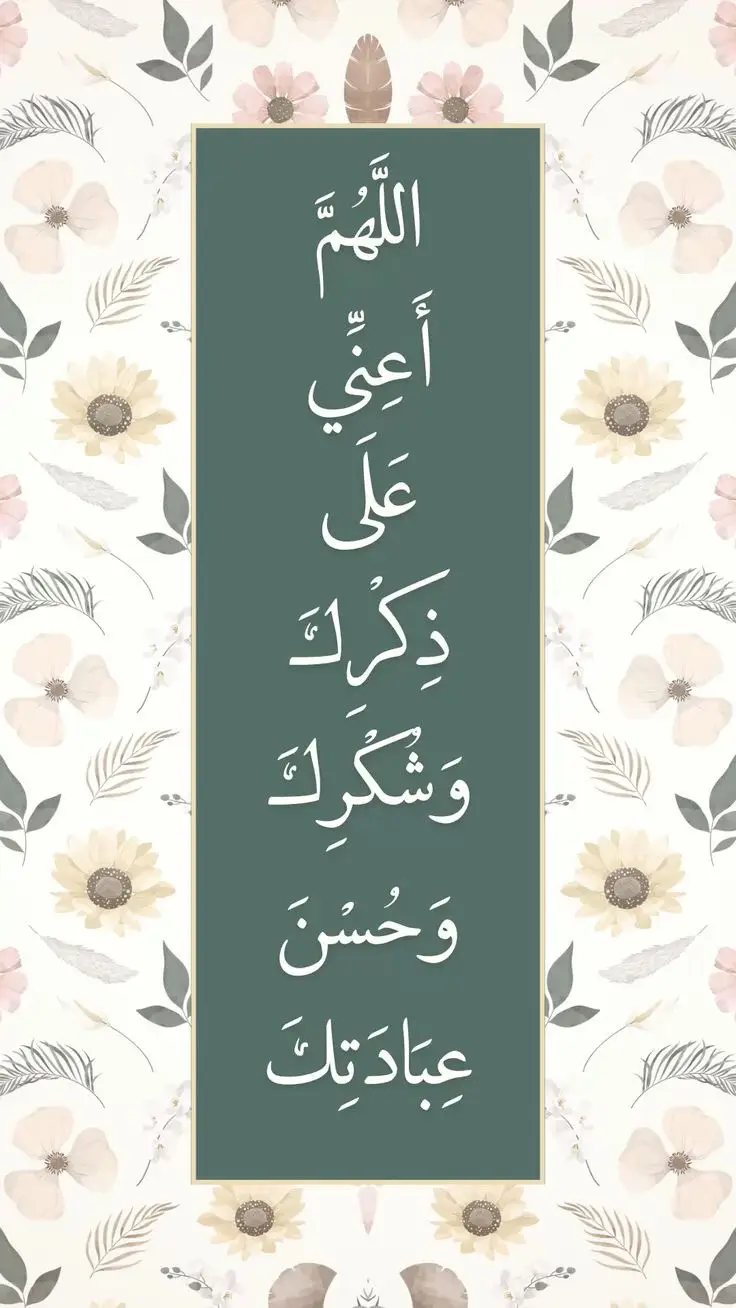 اللَّهُمَّ
أَعِنِّي
عَلَى
ذِكْرِكَ
وَشُكْرِكَ
وَحُسْنَ
عِبَادَتِكَ